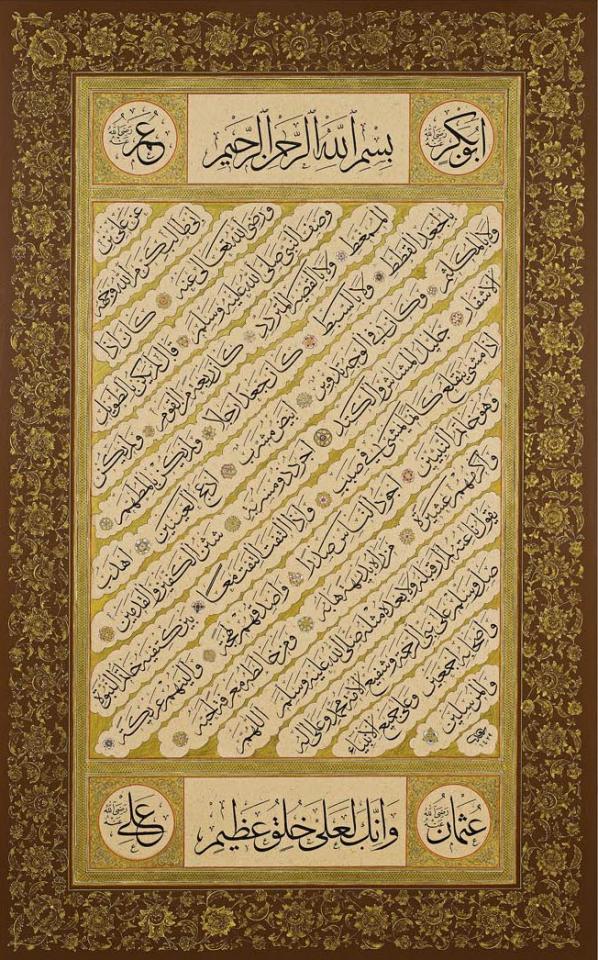 ابوبكر رضي الله عنه
بسم الله الرحمن الرحيم
عمر رضي الله عنه
عن علي بن
ابي طالب كرم الله وجهه
ورضي الله تعالى عنه كان اذا
وصف النبي صلى الله عليه وسلم قال لم يكن بالطويل
الممغط ولا بالقصير المتردد كان ربعة من القوم ولم يكن
بالجعد القطط ولا بالسبط كان جعدا رجلا ولم يكن بالمطهم
ولا بالمكلثم وكان في الوجه تدوير ابيض مشرب ادعج العينين اهدب
الاشفار جليل المشاش والكتد اجرد ذو مسربة شثن الكفين والقدمين
اذا مشى يتقلع كانما يمشي في صبب واذا التفت التفت معا بين كتفيه خاتم النبوة
وهو خاتم النبيين اجود الناس صدرا واصدقهم لهجة والينهم عريكة
واكرمهم عشيرة من رآه بديهة هابه ومن خالطه معرفة احبه
يقول ناعته لم ار قبله ولا بعده مثله صلى الله عليه وسلم اللهم
صل وسلم على نبي الرحمة وشفيع الامة محمد وعلى آله
واصحابه اجمعين وعلى جميع الانبياء
والمرسلين
عثمان رضي الله عنه
وانك لعلى خلق عظيم
علي رضي الله عنه